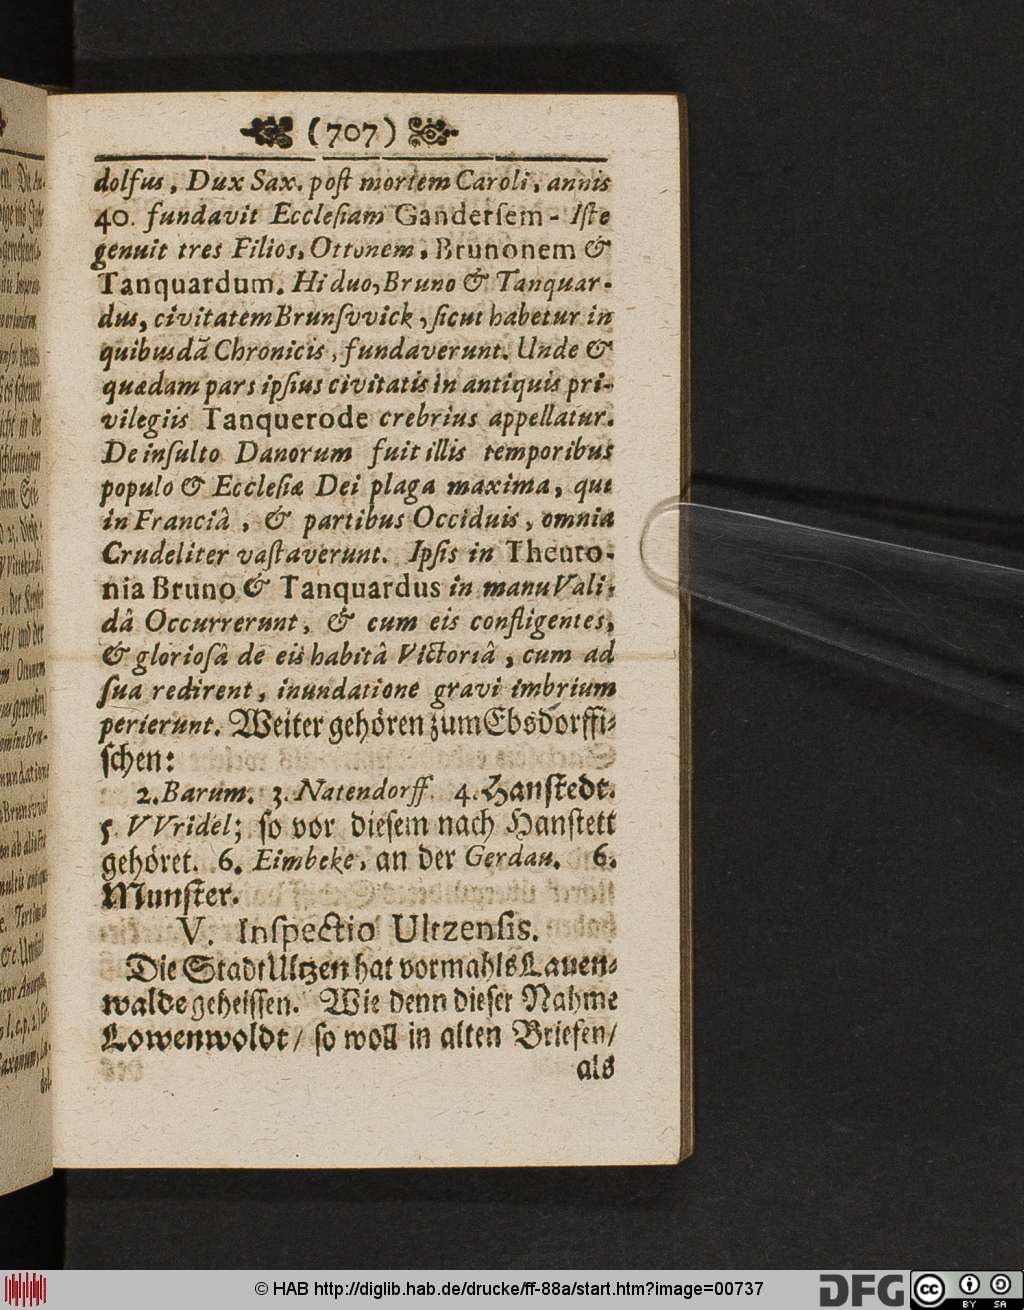 (707)
dolfus, Dux Sax. poſt mortem Caroli, annis
40. fundavit Eccleſiam Ganderſem- Iſte
genuit tres Filios, Ottonem, Brunonem &
Tanquardum. Hi duo, Bruno & Tanquar-
dus, civitatem Brunſvvick, ſicut habetur in
quibusdã Chronicis, fundaverunt. Unde &
quædam pars ipſius civitatis in antiquis pri-
vilegiis Tanquerode crebrius appellatur.
De inſulto Danorum fuit illis temporibus
populo & Eccleſiæ Dei plaga maxima, qui
in Franciâ, & partibus Occiduis, omnia
Crudeliter vaſtaverunt. Ipſis in Theuto-
nia Bruno & Tanquardus in manu Vali-
dâ Occurrerunt, & cum eis confligentes,
& glorioſâ de eis habitâ Victoriâ, cum ad
ſua redirent, inundatione gravi imbrium
perierunt. Weiter gehören zum Ebsdorffi-
ſchen:
2. Barum. 3. Natendorff. 4. Hanſtedt.
5. VVridel; ſo vor dieſem nach Hanſtett
gehöret. 6. Eimbeke, an der Gerdau. 6.
Munſter.
V. Inſpectio Ultzenſis.
Die Stadt Ultzen hat vormahls Lauen-
walde geheiſſen. Wie denn dieſer Nahme
Lowenwoldt / ſo woll in alten Briefen/
als
© HAB http://diglib.hab.de/drucke/ff-88a/start.htm?image=00737
DFG
cc
BY SA